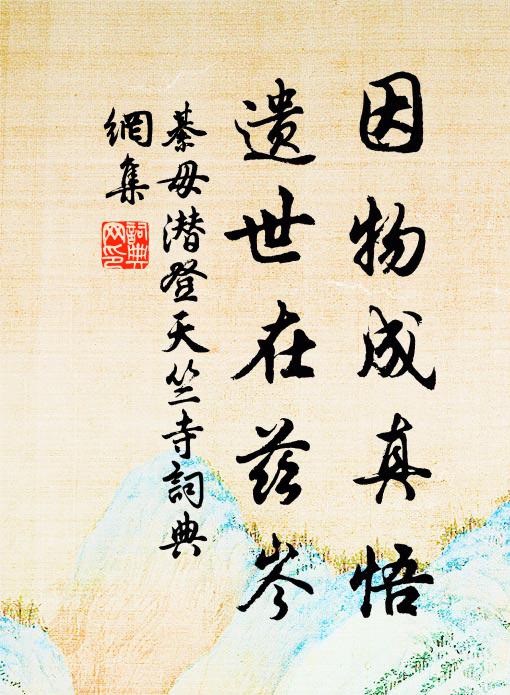 因物成真悟
遗世在兹岑
綦毋潜登天竺寺詞典
網集
詞典
网印